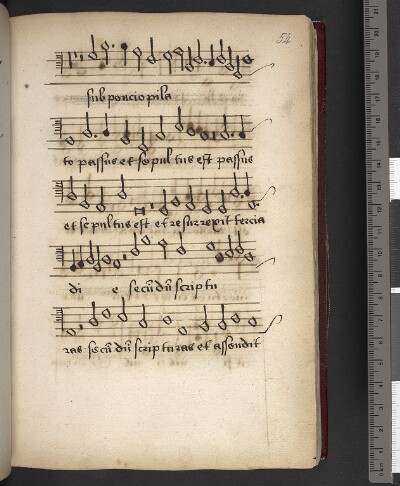 54
sub poncio pila
to passus et sepul tus est passus
et se pultus est et resurrexit tercia
di e secūdū scriptu
ras secū dū scrip turas et assendit